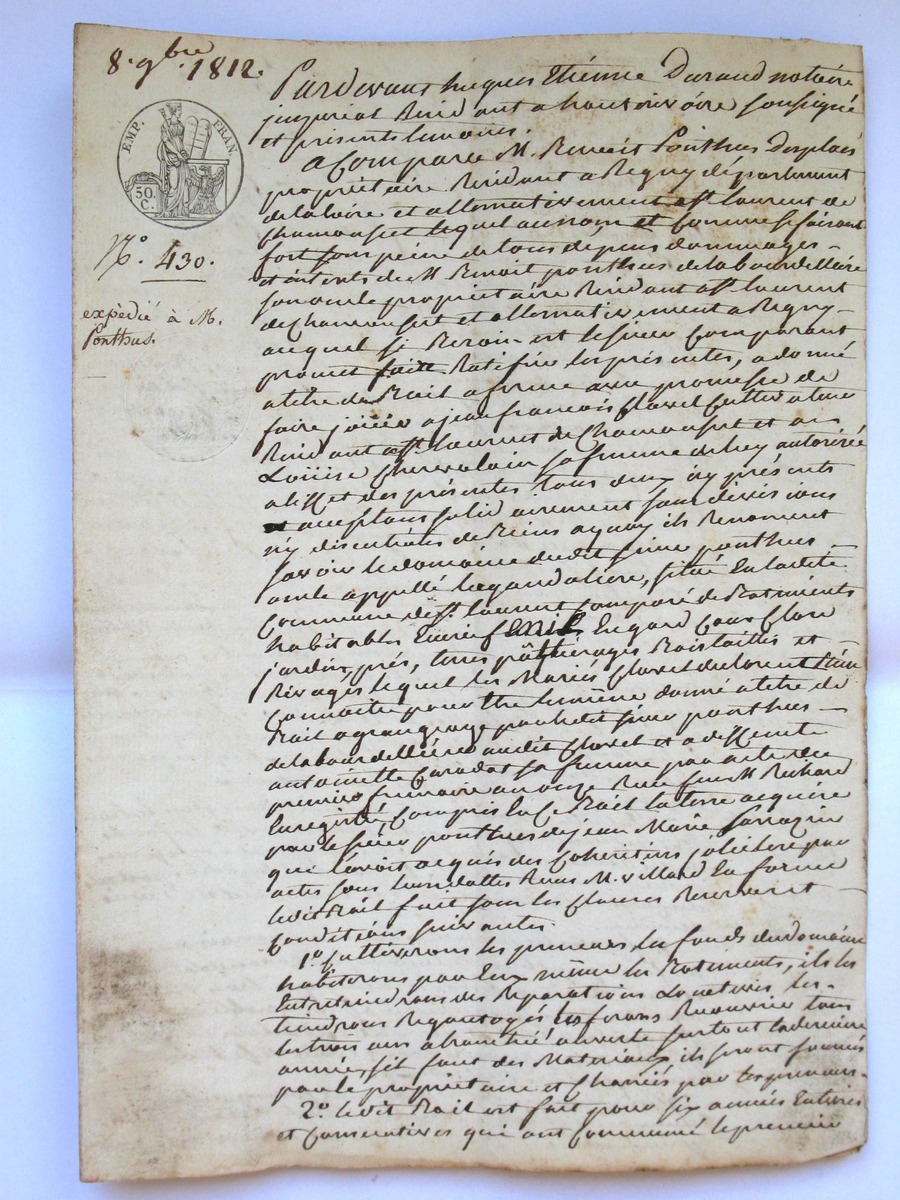 8. 9bre. 1812.
EMP. FRAN.
50 C.
N.° 430.
expèdié à M.
Ponthus.
Pardevant hugues Etiénne Durand notaire
jmpérial Residant a haute rivoire soussigné
et présents temoins.
a Comparu M. Benoit Ponthus Desplaés
propriétaire Residant a Regny département
de la loire et alternativement a St laurent de
Chamousset lequel au nom et Comme se faisant
fort sous peine de tous depens dommages
et intérets de M. Benoit ponthus de la bourdelliere
son oncle propriétaire Residant a St laurent
de Chamousset et alternativement a Regny
auquel si Besoin est le sieur Comparant
promet faire Ratifier les présentes, a donné
a titre de Bail a ferme avec promesse de
faire joüir a jean francois Clavel Cultivateur
Residant a St laurent de Chamousset et a
Loüise sa femme de luy autorisée
a l'effet des présentes tous deux icy présents
et acceptans solidairement sans division
ny discution de Biens a quoy ils Renoncent
savoir le domaine dudit sieur ponthus
oncle appellé lagandoliere, situé En ladite
Commune de St laurent Composé de Batiments
habitables Ecurie fenil hengard Cour Clos
jardin, prés, terres pâthérages Bois taillis et
Rivages lequel les Mariés Clavel declarent bien
Connoitre pour Etre lu même donné a titre de
Bail a grangeage par ledit sieur ponthus
de la bourdelliere audit Clavel et a deffunte
antoinette sa femme par acte du
premier frimaire an onze Reçu par M. Richard
Enregistré, Compris En Ce Bail la terre acquise
par le sieur ponthus de jean Marie Sarrazin
qui l'avoit acquis des Cohéritiers par
actes sous leurs dattes Recus M. villard En forme
ledit Bail fait sous les Clauses Reserves et
Conditions suivantes.
1° Cultiverons les preneurs les fonds du domaine
habiterons par Eux même les Batiments, ils les
Entretiendrons des Reparations Locatives les
tiendrons Regoutoyés les ferons Recouvrir tous
les trois ans a tranchée ouverte surtout la derniere
année, s'il faut des Materiaux ils seront fournis
par le propriétaire et Chariés par les preneurs
2° ledit Bail est fait pour six années Entieres
et Consecutives qui ont Commencé le premier